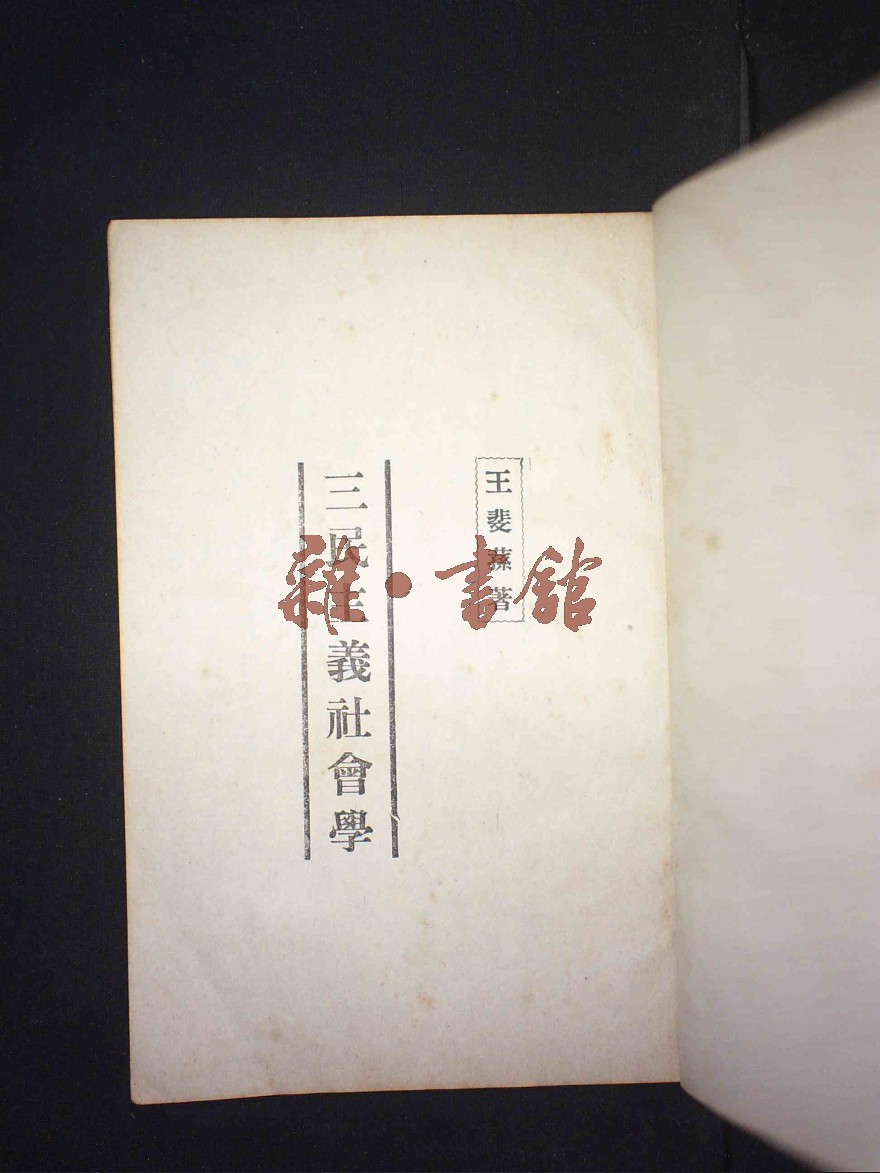 王斐蓀著
三民主義社會學
雜·書館